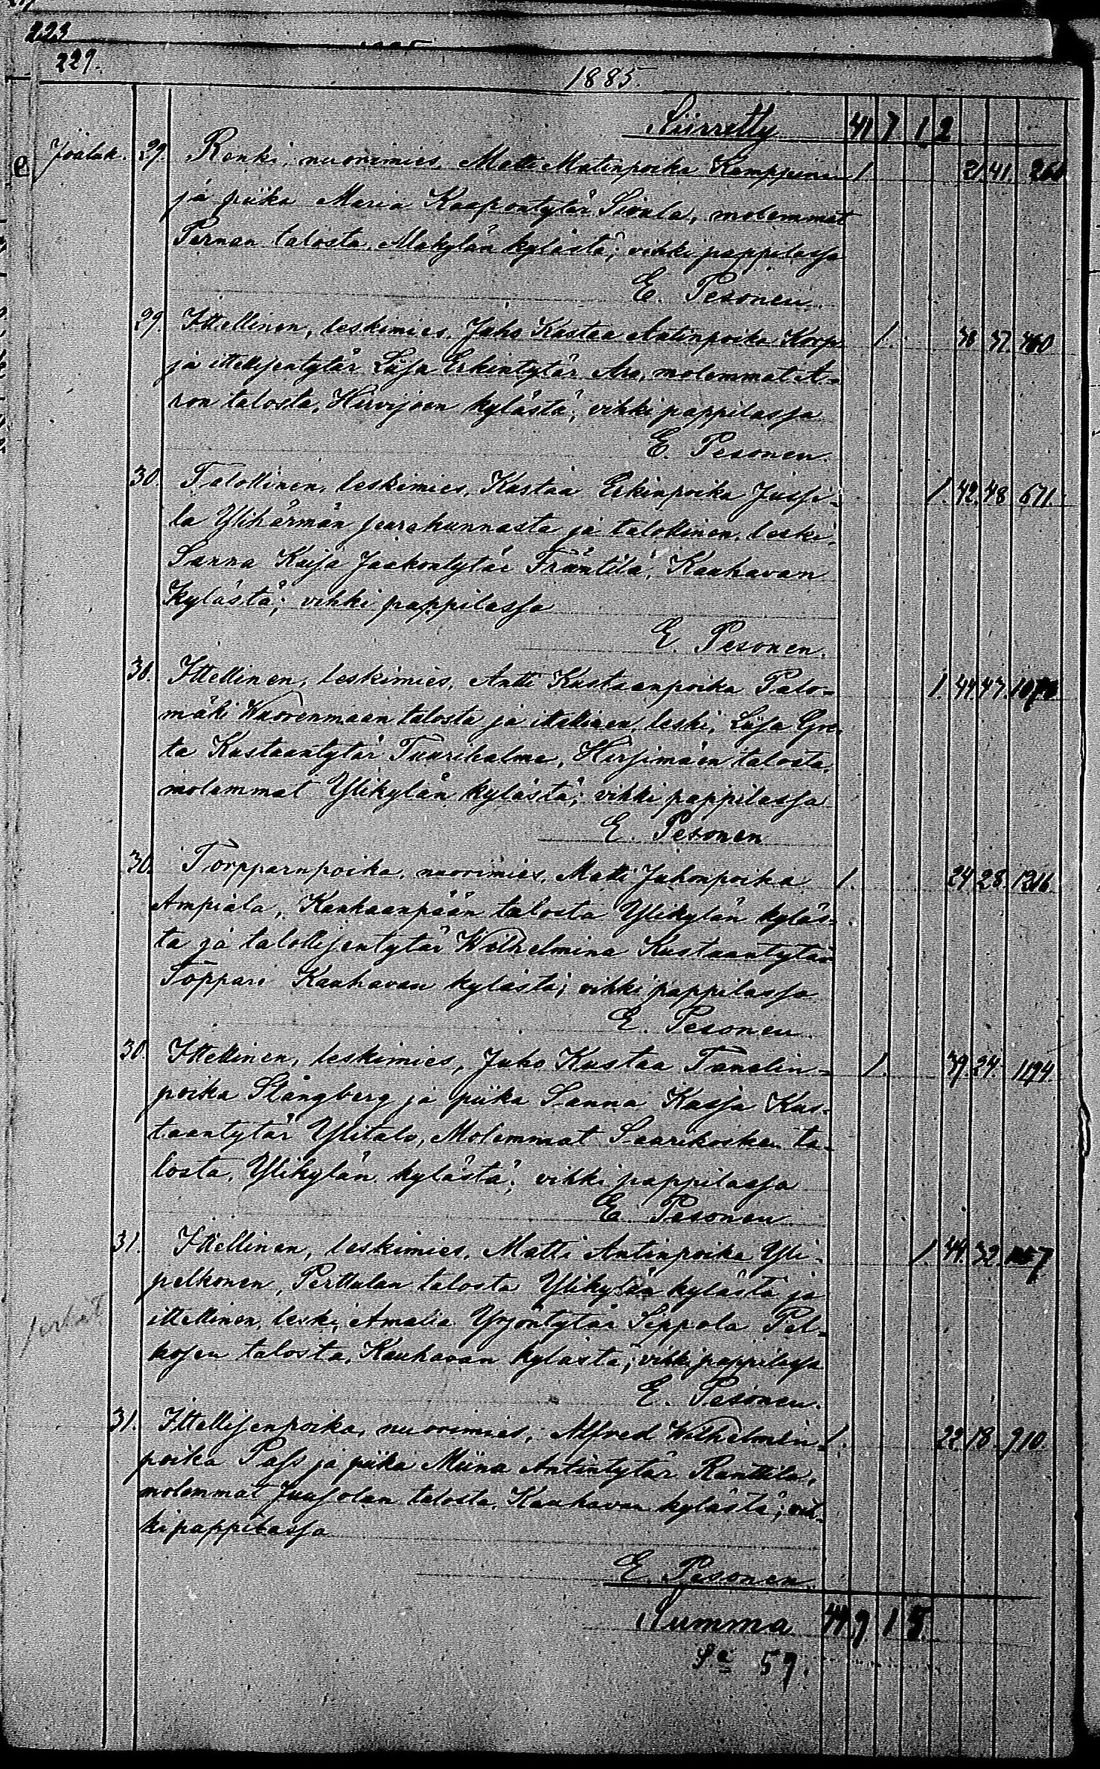 223
229.
1885.
Siirretty 41 7 1 2
Jouluk. 29. Renki, nuorimies, Matti Matinpoika Kamppinen 1 21 41 260
ja piika Maria Kaapontytär Sivula, molemmat
Pernan talosta, Mäkylän kylästä; vihki pappilassa
E. Pesonen.
29. Ittellinen, leskimies, Juho Kustaa Antinpoika Korp 1. 38 37
ja ittellisentytär Liisa Erkintytär Aro, molemmat A-
ron talosta, Hirvijoen kylästä; vihki pappilassa
E. Pesonen.
30. Talollinen, leskimies, Kustaa Erkinpoika Jussi- 1. 42. 48 671.
la Ylihärmän seurakunnasta ja talollinen, leski,
Sanna Kaisa Jaakontytär Fräntilä, Kauhavan
kylästä; vihki pappilassa
E. Pesonen.
30. Ittellinen, leskimies, Antti Kustaanpoika Palo- 1. 44. 47.
mäki Wuorenmaan talosta ja ittellinen, leski, Liisa Gre-
ta Kustaantytär Tuurihalme, Hirsimäen talosta,
molemmat Ylikylän kylästä; vihki pappilassa
E. Pesonen
30. Torpparinpoika, nuorimies, Matti Juhonpoika 1. 24 28. 1316
Ampiala, Kauhaanpään talosta Ylikylän kyläs-
tä ja talollisentytär Wilhelmina Kustaantytär
Toppari Kauhavan kylästä; vihki pappilassa
E. Pesonen
30. Ittellinen, leskimies, Juho Kustaa Tanelin- 1. 39. 24 1194.
poika Stångberg ja piika Sanna Kaisa Kus-
taantytär Ylitalo, Molemmat Saarikosken ta-
losta, Ylikylän kylästä; vihki pappilassa
E. Pesonen
31. Ittellinen, leskimies, Matti Antinpoika Yli- 1. 44. 32.
pelkonen, Perttulan talosta Ylikylän kylästä ja
ittellinen, leski, Amalia Yrjöntytär Seppola Pel-
kosen talosta, Kauhavan kylästä; vihki pappilassa
E. Pesonen.
31. Ittellisenpoika, nuorimies, Alfred Wilhelmin- 1. 22 18. 910.
poika Pass ja piika Miina Antintytär Ranttila,
molemmat Juusolan talosta, Kauhavan kylästä; vih-
ki pappilassa
E. Pesonen.
Summa 44 9 1 5.
S:a 59.